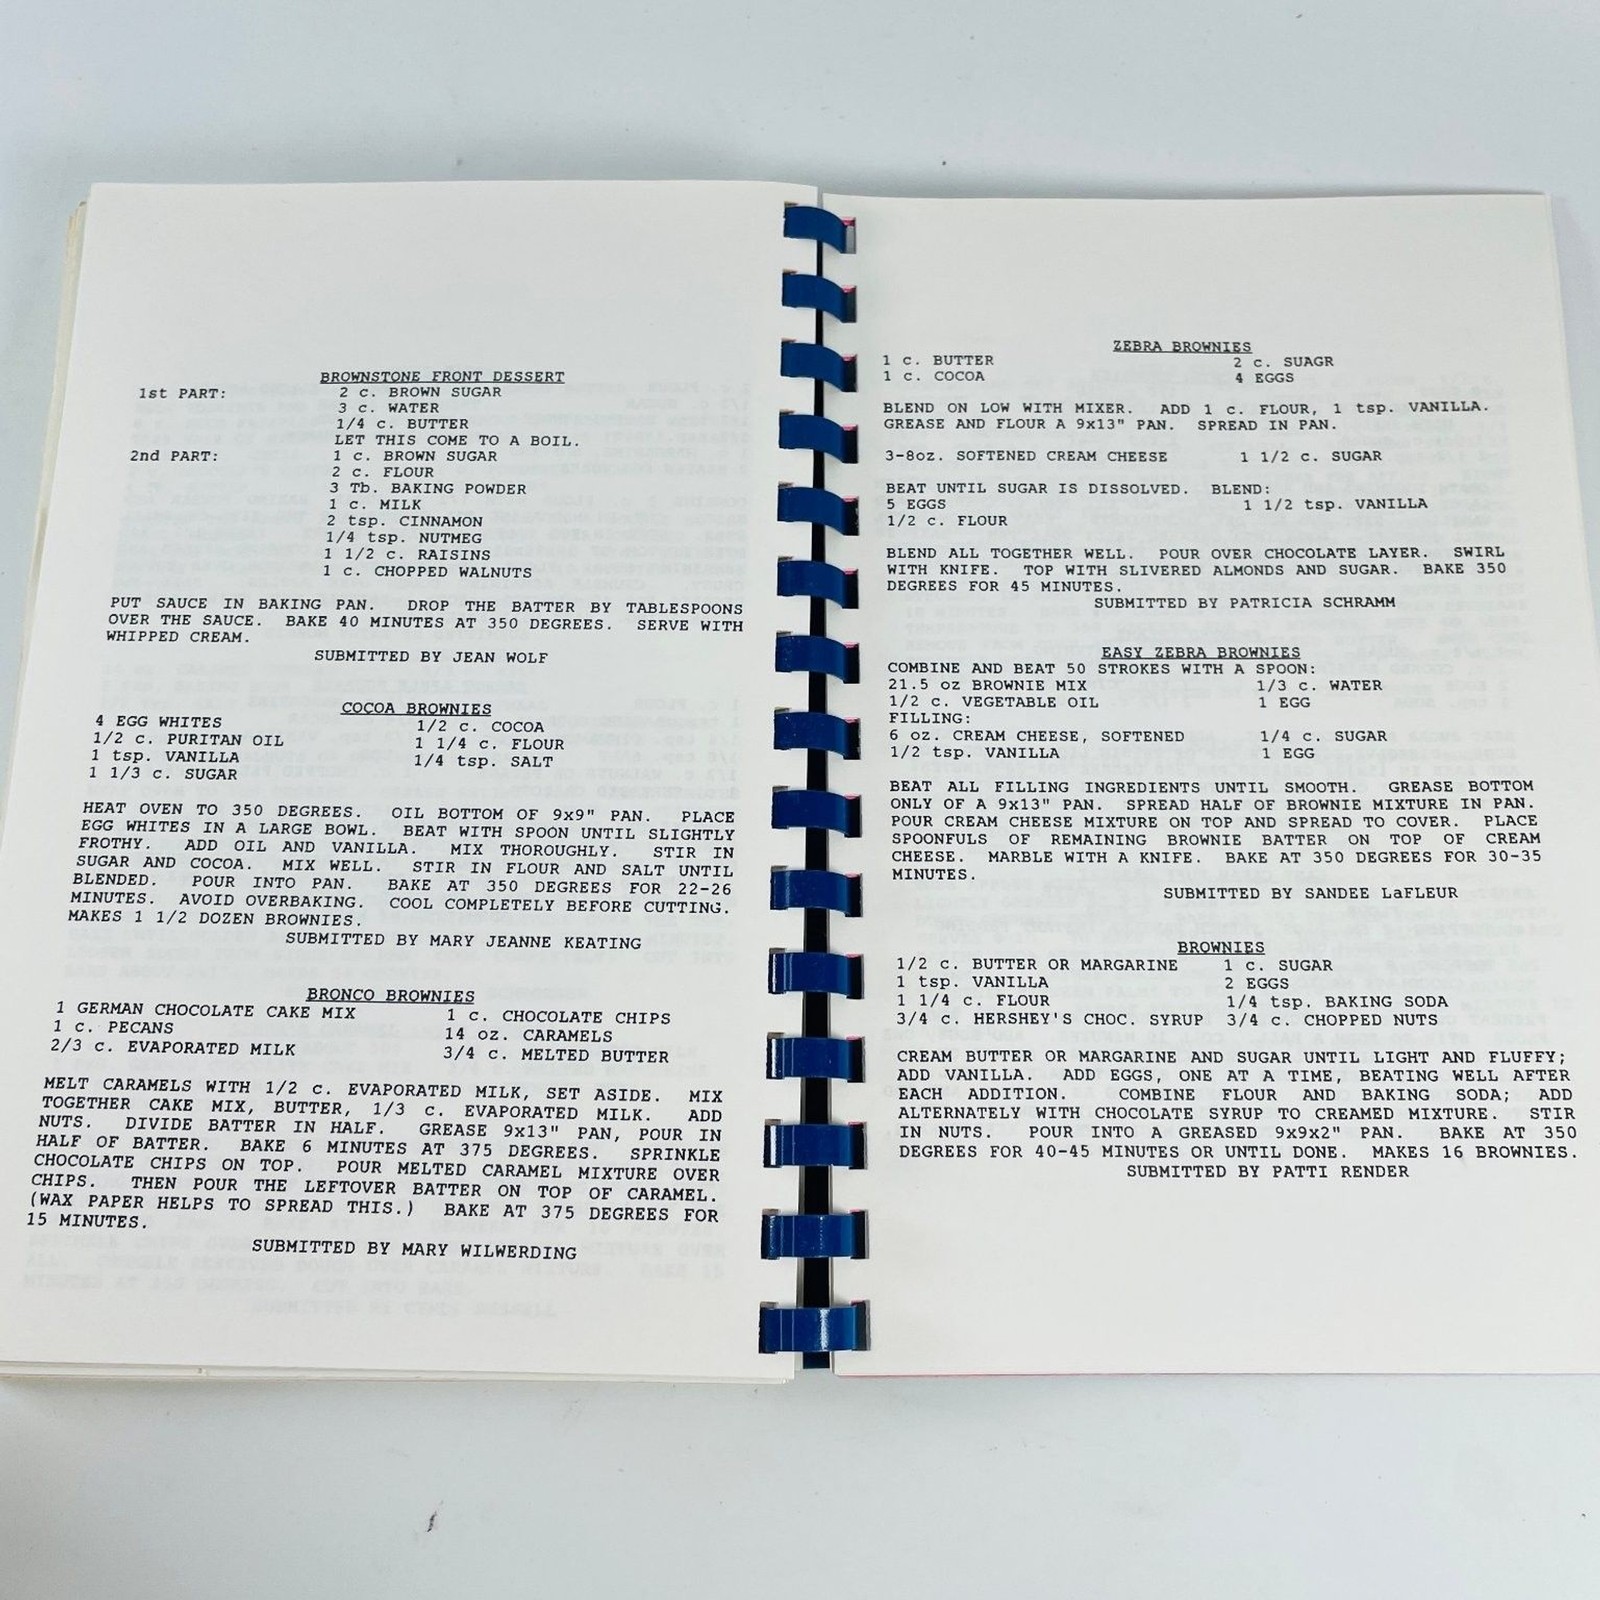 BROWNSTONE FRONT DESSERT
1st PART: 2 c. BROWN SUGAR
3 c. WATER
1/4 c. BUTTER
LET THIS COME TO A BOIL.
2nd PART: 1 c. BROWN SUGAR
2 c. FLOUR
3 Tb. BAKING POWDER
1 c. MILK
2 tsp. CINNAMON
1/4 tsp. NUTMEG
1 1/2 c. RAISINS
1 c. CHOPPED WALNUTS
PUT SAUCE IN BAKING PAN. DROP THE BATTER BY TABLESPOONS
OVER THE SAUCE. BAKE 40 MINUTES AT 350 DEGREES. SERVE WITH
WHIPPED CREAM.
SUBMITTED BY JEAN WOLF
COCOA BROWNIES
4 EGG WHITES 1/2 c. COCOA
1/2 c. PURITAN OIL 1 1/4 c. FLOUR
1 tsp. VANILLA 1/4 tsp. SALT
1 1/3 c. SUGAR
HEAT OVEN TO 350 DEGREES. OIL BOTTOM OF 9x9" PAN. PLACE
EGG WHITES IN A LARGE BOWL. BEAT WITH SPOON UNTIL SLIGHTLY
FROTHY. ADD OIL AND VANILLA. MIX THOROUGHLY. STIR IN
SUGAR AND COCOA. MIX WELL. STIR IN FLOUR AND SALT UNTIL
BLENDED. POUR INTO PAN. BAKE AT 350 DEGREES FOR 22-26
MINUTES. AVOID OVERBAKING. COOL COMPLETELY BEFORE CUTTING.
MAKES 1 1/2 DOZEN BROWNIES.
SUBMITTED BY MARY JEANNE KEATING
BRONCO BROWNIES
1 GERMAN CHOCOLATE CAKE MIX 1 c. CHOCOLATE CHIPS
1 c. PECANS 14 oz. CARAMELS
2/3 c. EVAPORATED MILK 3/4 c. MELTED BUTTER
MELT CARAMELS WITH 1/2 c. EVAPORATED MILK, SET ASIDE. MIX
TOGETHER CAKE MIX, BUTTER, 1/3 c. EVAPORATED MILK. ADD
NUTS. DIVIDE BATTER IN HALF. GREASE 9x13" PAN, POUR IN
HALF OF BATTER. BAKE 6 MINUTES AT 375 DEGREES. SPRINKLE
CHOCOLATE CHIPS ON TOP. POUR MELTED CARAMEL MIXTURE OVER
CHIPS. THEN POUR THE LEFTOVER BATTER ON TOP OF CARAMEL.
(WAX PAPER HELPS TO SPREAD THIS.) BAKE AT 375 DEGREES FOR
15 MINUTES.
SUBMITTED BY MARY WILWERDING
ZEBRA BROWNIES
1 c. BUTTER 2 c. SUAGR
1 c. COCOA 4 EGGS
BLEND ON LOW WITH MIXER. ADD 1 c. FLOUR, 1 tsp. VANILLA.
GREASE AND FLOUR A 9x13" PAN. SPREAD IN PAN.
3-8oz. SOFTENED CREAM CHEESE 1 1/2 c. SUGAR
BEAT UNTIL SUGAR IS DISSOLVED. BLEND:
5 EGGS 1 1/2 tsp. VANILLA
1/2 c. FLOUR
BLEND ALL TOGETHER WELL. POUR OVER CHOCOLATE LAYER. SWIRL
WITH KNIFE. TOP WITH SLIVERED ALMONDS AND SUGAR. BAKE 350
DEGREES FOR 45 MINUTES.
SUBMITTED BY PATRICIA SCHRAMM
EASY ZEBRA BROWNIES
COMBINE AND BEAT 50 STROKES WITH A SPOON:
21.5 oz BROWNIE MIX 1/3 c. WATER
1/2 c. VEGETABLE OIL 1 EGG
FILLING:
6 oz. CREAM CHEESE, SOFTENED 1/4 c. SUGAR
1/2 tsp. VANILLA 1 EGG
BEAT ALL FILLING INGREDIENTS UNTIL SMOOTH. GREASE BOTTOM
ONLY OF A 9x13" PAN. SPREAD HALF OF BROWNIE MIXTURE IN PAN.
POUR CREAM CHEESE MIXTURE ON TOP AND SPREAD TO COVER. PLACE
SPOONFULS OF REMAINING BROWNIE BATTER ON TOP OF CREAM
CHEESE. MARBLE WITH A KNIFE. BAKE AT 350 DEGREES FOR 30-35
MINUTES.
SUBMITTED BY SANDEE LaFLEUR
BROWNIES
1/2 c. BUTTER OR MARGARINE 1 c. SUGAR
1 tsp. VANILLA 2 EGGS
1 1/4 c. FLOUR 1/4 tsp. BAKING SODA
3/4 c. HERSHEY'S CHOC. SYRUP 3/4 c. CHOPPED NUTS
CREAM BUTTER OR MARGARINE AND SUGAR UNTIL LIGHT AND FLUFFY;
ADD VANILLA. ADD EGGS, ONE AT A TIME, BEATING WELL AFTER
EACH ADDITION. COMBINE FLOUR AND BAKING SODA; ADD
ALTERNATELY WITH CHOCOLATE SYRUP TO CREAMED MIXTURE. STIR
IN NUTS. POUR INTO A GREASED 9x9x2" PAN. BAKE AT 350
DEGREES FOR 40-45 MINUTES OR UNTIL DONE. MAKES 16 BROWNIES.
SUBMITTED BY PATTI RENDER